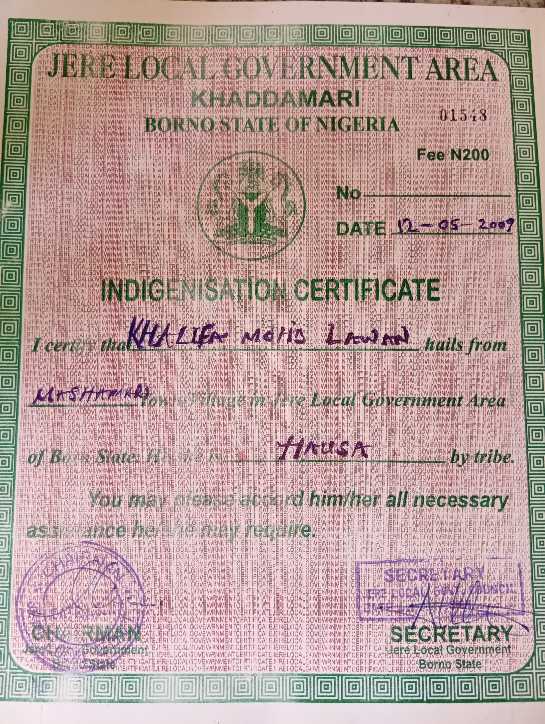 JERE LOCAL GOVERNMENT AREA
KHADDAMARI
BORNO STATE OF NIGERIA
01548
Fee N200
No
DATE 12-05-2009
INDIGENISATION CERTIFICATE
I certify that KHALIFA MOHD LAWAN hails from
MASHAMARI Town/Village in Jere Local Government Area
of Borno State. He/She is HAUSA by tribe.
You may please accord him/her all necessary
assistance he/she may require.
CHAIRMAN
SECRETARY
JERE LOCAL GOVT. COUNCIL
CHAIRMAN
Jere Local Government
Borno State
SECRETARY
Jere Local Government
Borno State